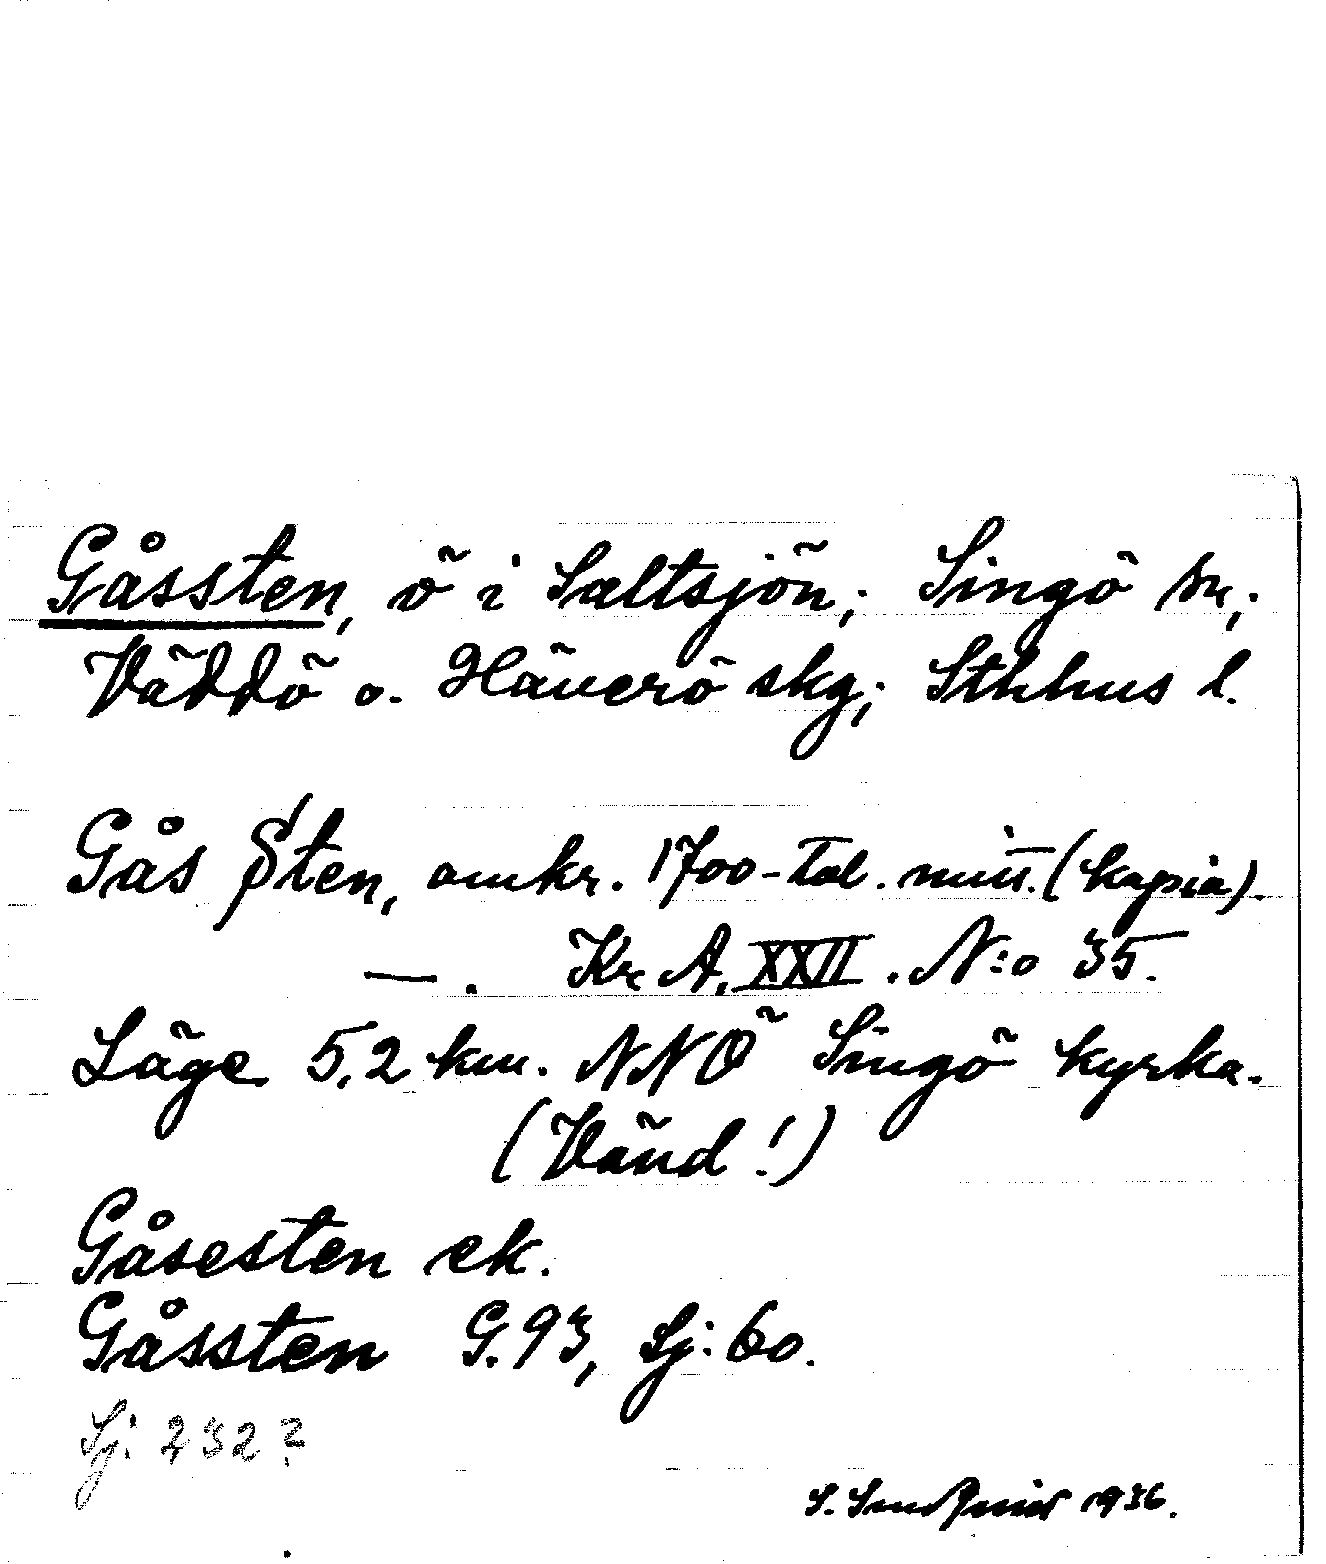 Gåssten, ö i Saltsjön; Singö sn;
Väddö o. Häverö skg; Sthlms l.
Gås Sten, omkr. 1700-tal. mitt. (kopia).
—. Kr. A. XXII. N:o 35.
Läge 5,2 km. NNÖ Singö kyrka.
(Vänd!)
Gåsesten ek.
Gåssten G. 93, Sj: 60.
Sj: 232?
S. 1936.